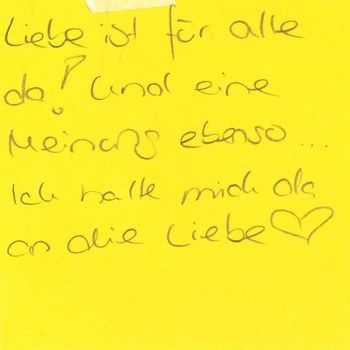 Liebe ist für alle
da! Und eine
Meinung ebenso...
Ich halte mich da
an die Liebe ♡